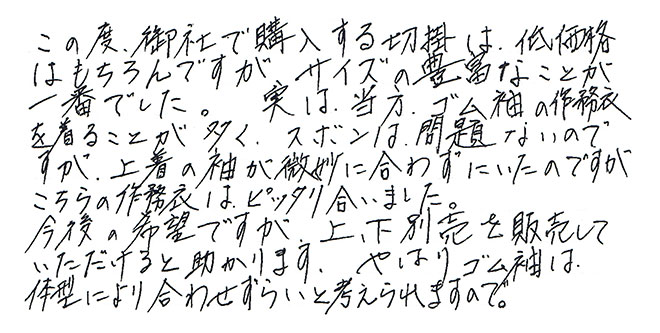 この度、御社で購入する切掛は、低価格
はもちろんですが サイズの豊富なことが
一番でした。 実は、当方、ゴム袖の作務衣
を着ることが多く、スボンは、問題ないので
すが、上着の袖が微妙に合わずにいたのですが
こちらの作務衣は、ピッタリ合いました。
今後の希望ですが、上、下別売を販売して
いただけると助かります。 やはりゴム袖は、
体型により合わせずらいと考えられますので。